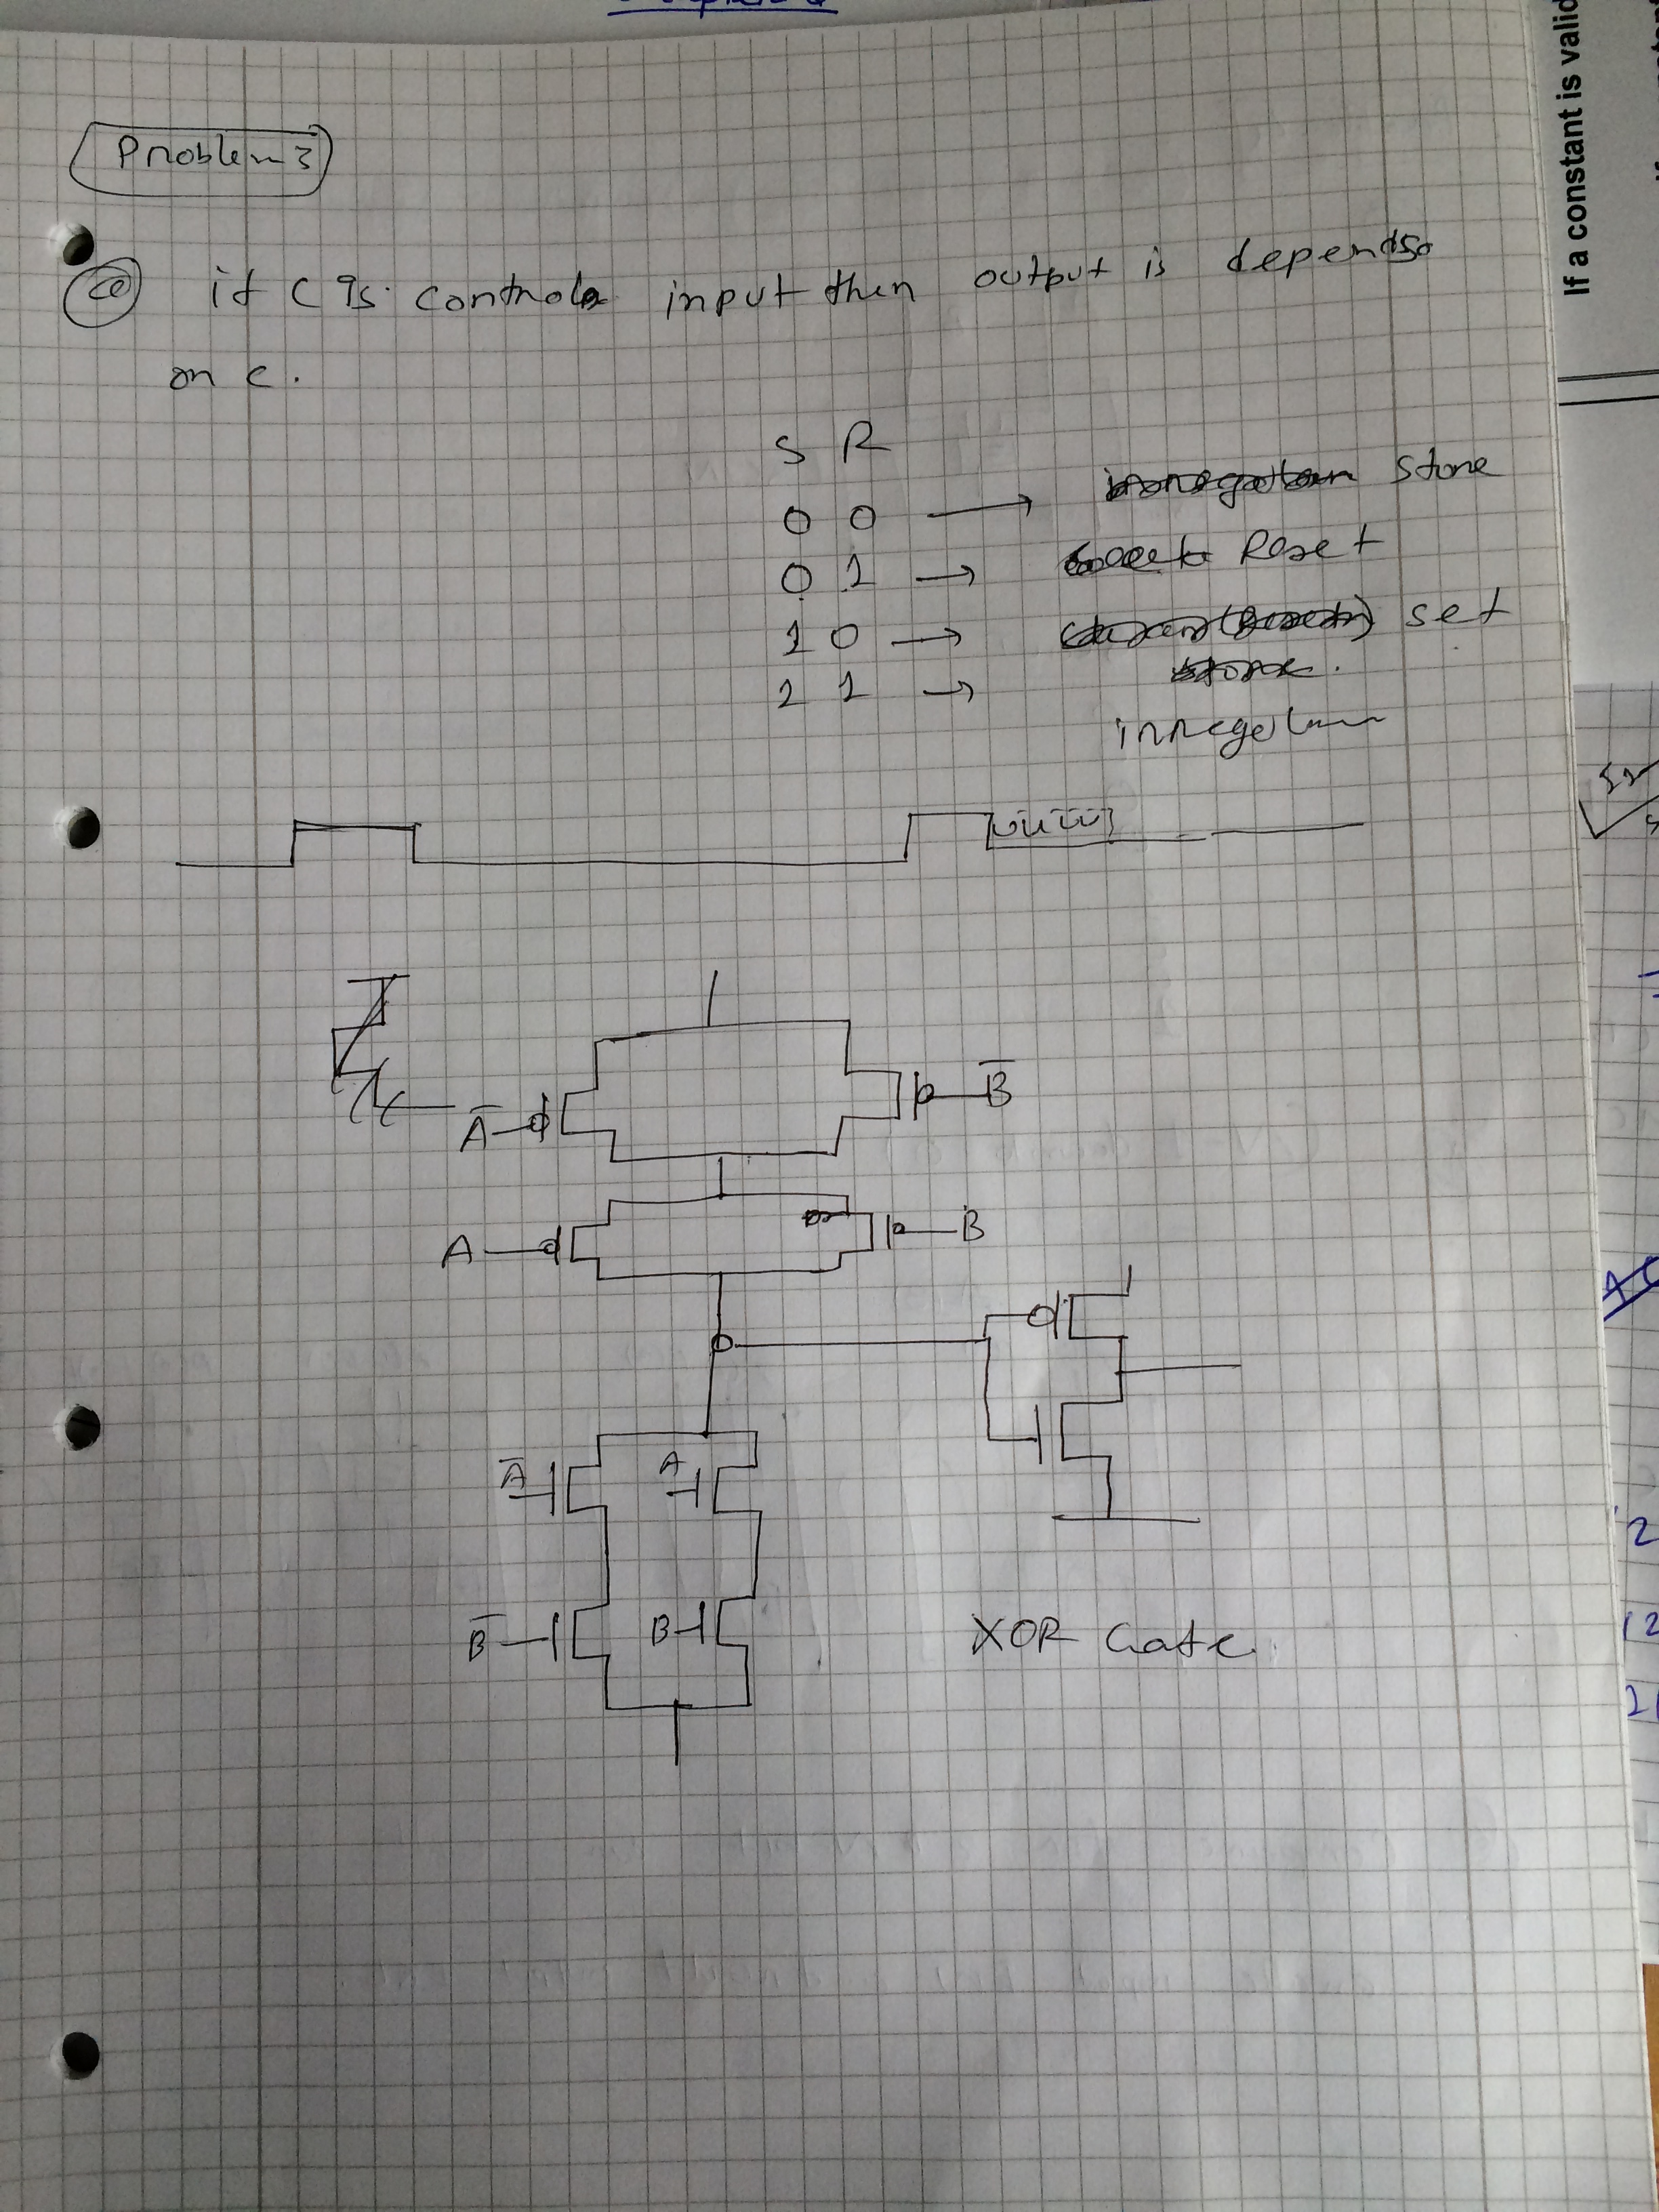 Problem 3
a if C is control input then output is depends
on c.
S R
0 0 → store
0 1 → Reset
1 0 → set
1 1 →
irregular
A̅ B̅
A B
A̅ A
B̅ B
XOR Gate
If a constant is valid